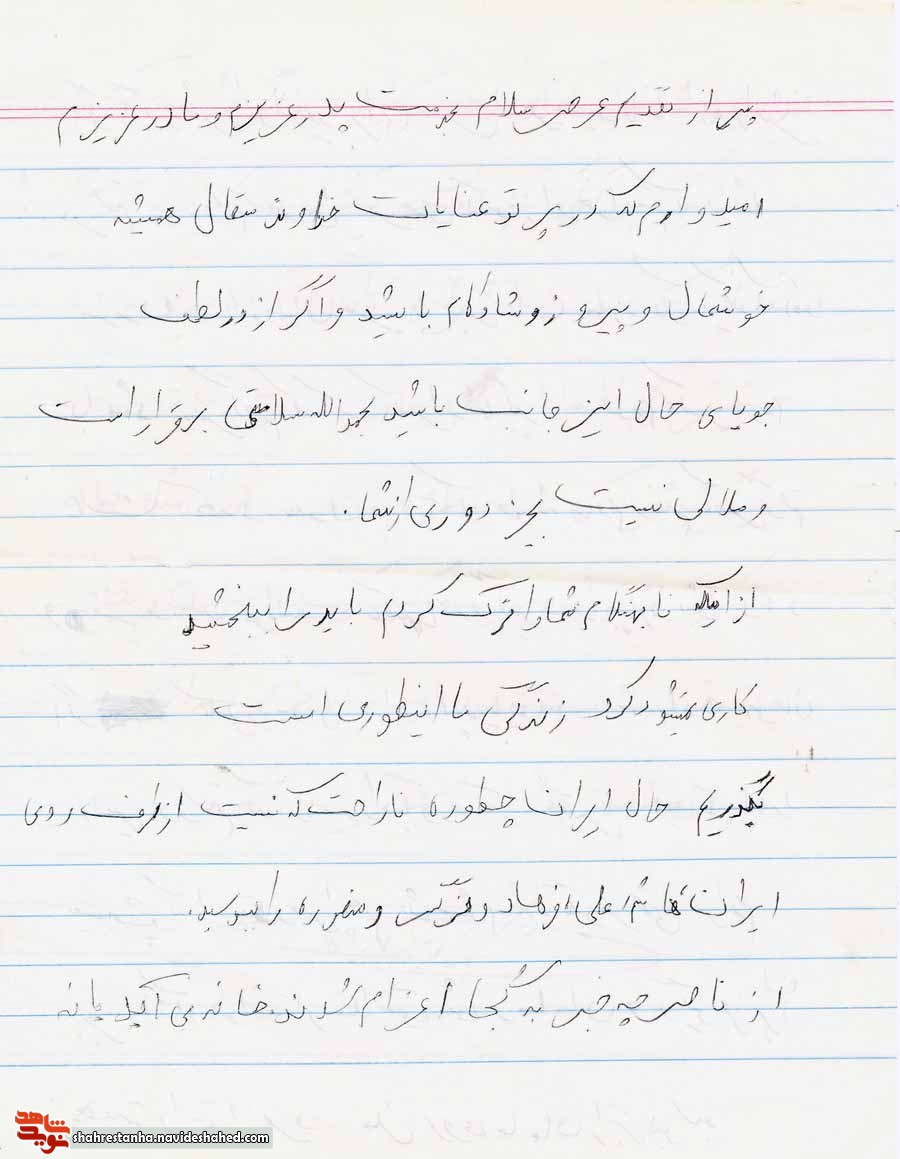 پس از تقدیم عرض سلام بخدمت پدر عزیزم و مادر عزیزم
امیدوارم که در پرتو عنایات خداوند متعال همیشه
خوشحال و پیروز و شادکام باشید و اگر از در لطف
جویای حال این جانب باشید بحمدالله سلامتی برقرار است
و ملالی نیست بجز دوری از شما.
از اینکه نابهنگام شما را ترک کردم باید مرا ببخشید
کاری نمیشود کرد زندگی ما اینطوری است
بگذریم حال ایران چطوره ناراحت که نیست از طرف روی
ایران، علی، فرهاد و و منصوره را ببوسید.
از ناصر چه خبر به کجا اعزام شدند. خانه می آید یا نه
نوید شاهد
shahrestanha.navideshahed.com